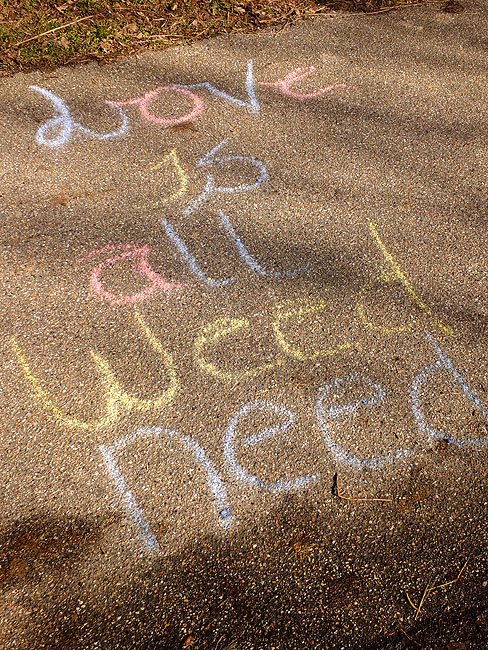 Love
is
all
weed
need